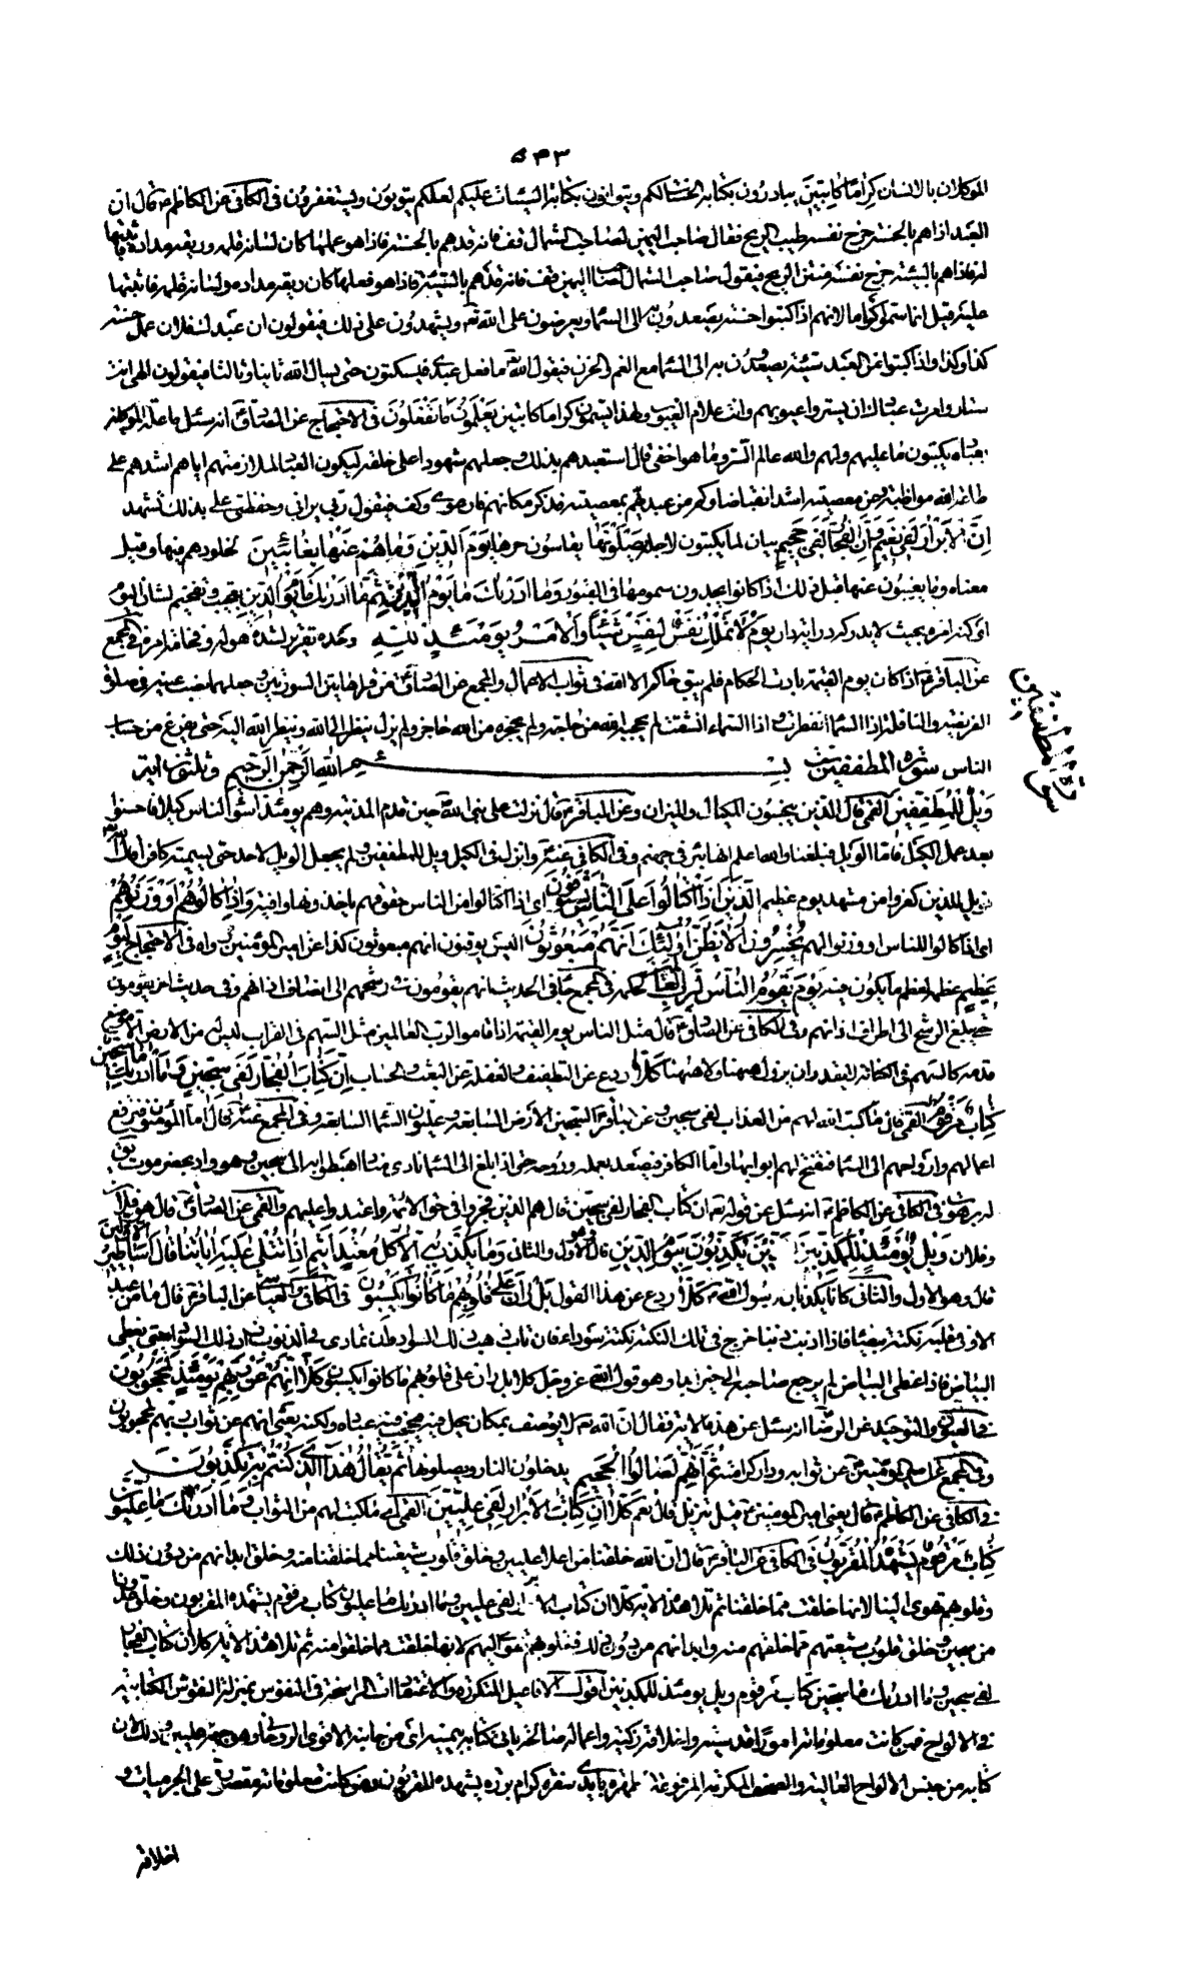 ٥٤٣
الموكلان بالانسان كِرامًا كاتِبينَ يبادرون بكتابة الحسنات لكم ويتوانون بكتابة السيئات عليكم لعلكم تتوبون وتستغفرون فى الكافى عن الكاظم ع قال ان
العبد اذا هم بالحسنة خرج نفسه طيب الريح فقال صاحب اليمين لصاحب الشمال قف فانه قد هم بالحسنة فاذا هو عملها كان لسانه قلمه وريقه مداده فاثبتها
له فاذا هم بالسيئة خرج نفسه منتن الريح فيقول صاحب الشمال لصاحب اليمين قف فانه قد هم بالسيئة فاذا هو فعلها كان ريقه مداده ولسانه قلمه فاثبتها
عليه قيل انما سموا كراما لانهم اذا كتبوا حسنة يصعدون به الى السماء ويعرضون على الله تع ويشهدون على ذلك فيقولون ان عبدك فلان عمل حسنة
كذا وكذا واذا كتبوا من العبد سيئة يصعدون به الى السماء مع الغم والحزن فيقول الله تع ما فعل عبدى فيسكتون حتى يسال الله ثانيا وثالثا فيقولون الهى انت
ستار وامرت عبادك ان يستروا عيوبهم وانت علام الغيوب ولهذا يسمون كراما كاتبين يَعْلَمُونَ ما تَفْعَلُونَ فى الاحتجاج عن الصادق ع انه سئل ما علة الموكلين
بعباده يكتبون ما عليهم ولهم والله عالم السر وما هو اخفى قال استعبدهم بذلك وجعلهم شهودا على خلقه ليكون العباد لملازمتهم اياهم اشد على
طاعة الله مواظبة وعن معصيته اشد انقباضا وكم من عبد يهم بمعصيته فذكر مكانهم فارعوى وكف فيقول ربى يرانى وحفظتى على بذلك تشهد
اِنَّ الاَبْرارَ لَفى نَعيمٍ وَاِنَّ الفُجّارَ لَفى جَحيمٍ بيان لما يكتبون لاجله يَصْلَوْنَها يقاسون حرها يَوْمَ الدّينِ وَما هُمْ عَنْها بِغائِبينَ لخلودهم فيها وقيل
معناه وما يغيبون عنها قبل ذلك اذ كانوا يجدون سمومها فى القبور وَما اَدْريكَ ما يَوْمُ الدّينِ ثُمَّ ما اَدْريكَ ما يَوْمُ الدّينِ تعجيب وتفخيم لشان اليوم
اى كنه امره بحيث لا يدركه دراية دار يَوْمَ لا تَمْلِكُ نَفْسٌ لِنَفْسٍ شَيْئًا وَالاَمْرُ يَوْمَئِذٍ لِلّهِ وحده تقرير لشدة هوله وفخامة امره فى المجمع
عن الباقر ع اذا كان يوم القيمة بادت الحكام فلم يبق حاكم الا الله فى ثواب الاعمال والمجمع عن الصادق ع من قرا هاتين السورتين وجعلهما نصب عينيه فى صلوة
الفريضة والنافلة اذا السماء انفطرت واذا السماء انشقت لم يحجبه الله من حاجته ولم يحجزه من الله حاجز ولم يزل ينظر الى الله وينظر الله اليه حتى يفرغ من حساب
الناس سورة المطففين بِسْمِ اللهِ الرَّحْمنِ الرَّحيمِ وثلثون اية
سورة المطففين
وَيْلٌ لِلْمُطَفِّفينَ القمى قال الذين يبخسون المكيال والميزان وعن الباقر ع قال نزلت على نبى الله حين قدم المدينة وهم يومئذ اسوأ الناس كيلا فاحسنوا
بعد عمل الكيل فاما الويل فبلغنا والله اعلم انها بئر فى جهنم وفى الكافى عنه ع وانزل فى الكيل ويل للمطففين ولم يجعل الويل لاحد حتى يسميه كافرا قال الله تع
فويل للذين كفروا من مشهد يوم عظيم اَلَّذينَ اِذَا اكْتالُوا عَلَى النّاسِ يَسْتَوْفُونَ اى اذا اكتالوا من الناس حقوقهم ياخذونها وافية وَاِذا كالُوهُمْ اَوْ وَزَنُوهُمْ
اى اذا كالوا للناس او وزنوا لهم يُخْسِرُونَ اَلا يَظُنُّ اُولئِكَ اَنَّهُمْ مَبْعُوثُونَ اليس يوقنون انهم مبعوثون كذا عن امير المؤمنين ع رواه فى الاحتجاج لِيَوْمٍ
عَظيمٍ عظمه لعظم ما يكون فيه يَوْمَ يَقُومُ النّاسُ لِرَبِّ العالَمينَ لحكمه فى المجمع جاء فى الحديث انهم يقومون فى رشحهم الى انصاف اذانهم وفى حديث اخر يقومون
حتى يبلغ الرشح الى اطراف اذانهم وفى الكافى عن الصادق ع قال مثل الناس يوم القيمة اذا قاموا لرب العالمين مثل السهم فى القراب ليس له من الارض الا موضع
قدمه كالسهم فى الكنانة لا يقدر ان يزول ههنا ولا ههنا كَلّا ردع عن التطفيف والغفلة عن البعث والحساب اِنَّ كِتابَ الفُجّارِ لَفى سِجّينٍ وَما اَدْريكَ ما سِجّينٌ
كِتابٌ مَرْقُومٌ القمى قال ما كتب الله لهم من العذاب لفى سجين وعن الباقر ع السجين الارض السابعة وعليون السماء السابعة وفى المجمع عنه ع قال اما المؤمنون فترفع
اعمالهم وارواحهم الى السماء فتفتح لهم ابوابها واما الكافر فيصعد بعمله وروحه حتى اذا بلغ الى السماء نادى مناد اهبطوا به الى سجين وهو واد بحضرموت يق
له برهوت وفى الكافى عن الكاظم ع انه سئل عن قوله تع ان كتاب الفجار لفى سجين قال هم الذين فجروا فى حق الائمة واعتدوا عليهم والقمى عن الصادق ع قال هو فلان
وفلان وَيْلٌ يَوْمَئِذٍ لِلْمُكَذِّبينَ اَلَّذينَ يُكَذِّبُونَ بِيَوْمِ الدّينِ قال هو الاول والثانى وَما يُكَذِّبُ بِهِ اِلّا كُلُّ مُعْتَدٍ اَثيمٍ اِذا تُتْلى عَلَيْهِ اياتُنا قالَ اَساطيرُ الاَوَّلينَ
قال وهو الاول والثانى كانا يكذبان رسول الله ص كَلّا ردع عن هذا القول بَلْ رانَ عَلى قُلُوبِهِمْ ما كانُوا يَكْسِبُونَ فى الكافى والعياشى عن الباقر ع قال ما من عبد
الا وفى قلبه نكتة بيضاء فاذا اذنب ذنبا خرج فى تلك النكتة نكتة سوداء فان تاب ذهب ذلك السواد وان تمادى فى الذنوب زاد ذلك السواد حتى يغطى
البياض فاذا غطى البياض لم يرجع صاحبه الى خير ابدا وهو قول الله عز وجل كلا بل ران على قلوبهم ما كانوا يكسبون كَلّا اِنَّهُمْ عَنْ رَبِّهِمْ يَوْمَئِذٍ لَمَحْجُوبُونَ
فى العيون والتوحيد عن الرضا ع انه سئل عن هذه الاية فقال ان الله تع لا يوصف بمكان يحل فيه فيحجب عنه فيه عباده ولكنه يعنى انهم عن ثواب ربهم لمحجوبون
وفى المجمع عن امير المؤمنين ع عن ثوابه ودار كرامته ثُمَّ اِنَّهُمْ لَصالُوا الجَحيمِ يدخلون النار ويصلونها ثُمَّ يُقالُ هذَا الَّذى كُنْتُمْ بِهِ تُكَذِّبُونَ
فى الكافى عن الكاظم ع قال يعنى امير المؤمنين ع قيل تنزيل قال نعم كَلّا اِنَّ كِتابَ الاَبْرارِ لَفى عِلِّيّينَ القمى اى ما كتب لهم من الثواب وَما اَدْريكَ ما عِلِّيُّونَ
كِتابٌ مَرْقُومٌ يَشْهَدُهُ المُقَرَّبُونَ فى الكافى عن الباقر ع قال ان الله خلقنا من اعلا عليين وخلق قلوب شيعتنا مما خلقنا منه وخلق ابدانهم من دون ذلك
وقلوبهم تهوى الينا لانها خلقت مما خلقنا ثم تلا هذه الاية كلا ان كتاب الابرار لفى عليين وما ادريك ما عليون كتاب مرقوم يشهده المقربون وخلق عدونا
من سجين وخلق قلوب شيعتهم مما خلقهم منه وابدانهم من دون ذلك فقلوبهم تهوى اليهم لانها خلقت مما خلقوا منه ثم تلا هذه الاية كلا ان كتاب الفجار
لفى سجين وما ادريك ما سجين كتاب مرقوم ويل يومئذ للمكذبين اقول الافاعيل المتكررة والاعتقادات الراسخة فى النفوس بمنزلة النقوش الكتابية
فى الالواح فمن كانت معلوماته امورا قدسية واخلاقه زكية واعماله صالحة ياتى كتابه بيمينه اى من جانبه الاقوى الروحانى وهو جهة عليين وذلك لان
كتابه من جنس الالواح العالية والصحف المكرمة المرفوعة المطهرة بايدى سفرة كرام بررة يشهده المقربون ومن كانت معلوماته مقصورة على الجرميات و
اخلاقه